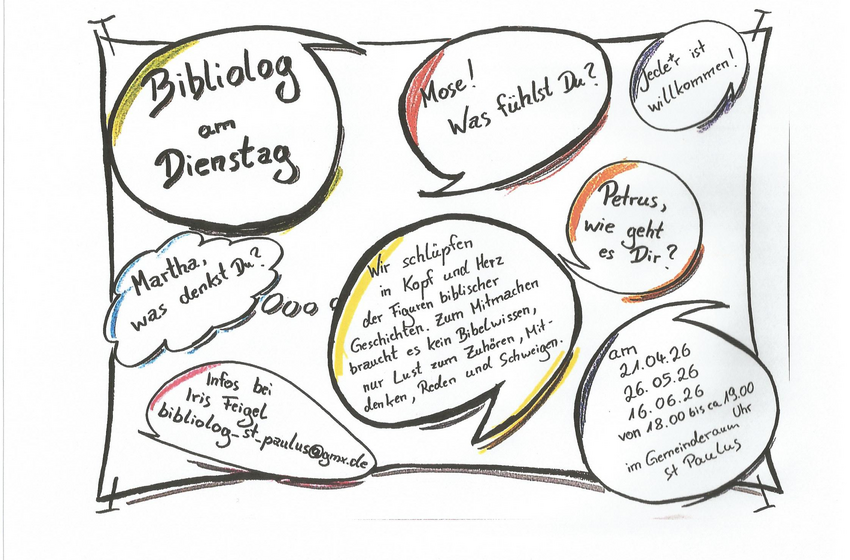 Bibliolog
am
Dienstag
Mose!
Was fühlst Du?
Jede*r ist
willkommen!
Petrus,
wie geht
es Dir?
Martha,
was denkst Du?
Wir schlüpfen
in Kopf und Herz
der Figuren biblischer
Geschichten. Zum Mitmachen
braucht es kein Bibelwissen,
nur Lust zum Zuhören, Mit-
denken, Reden und Schweigen.
Infos bei
Iris Feigel
bibliolog_st_paulus@gmx.de
am
21.04.26
26.05.26
16.06.26
von 18.00 bis ca. 19.00
Uhr
im Gemeinderaum
St Paulus